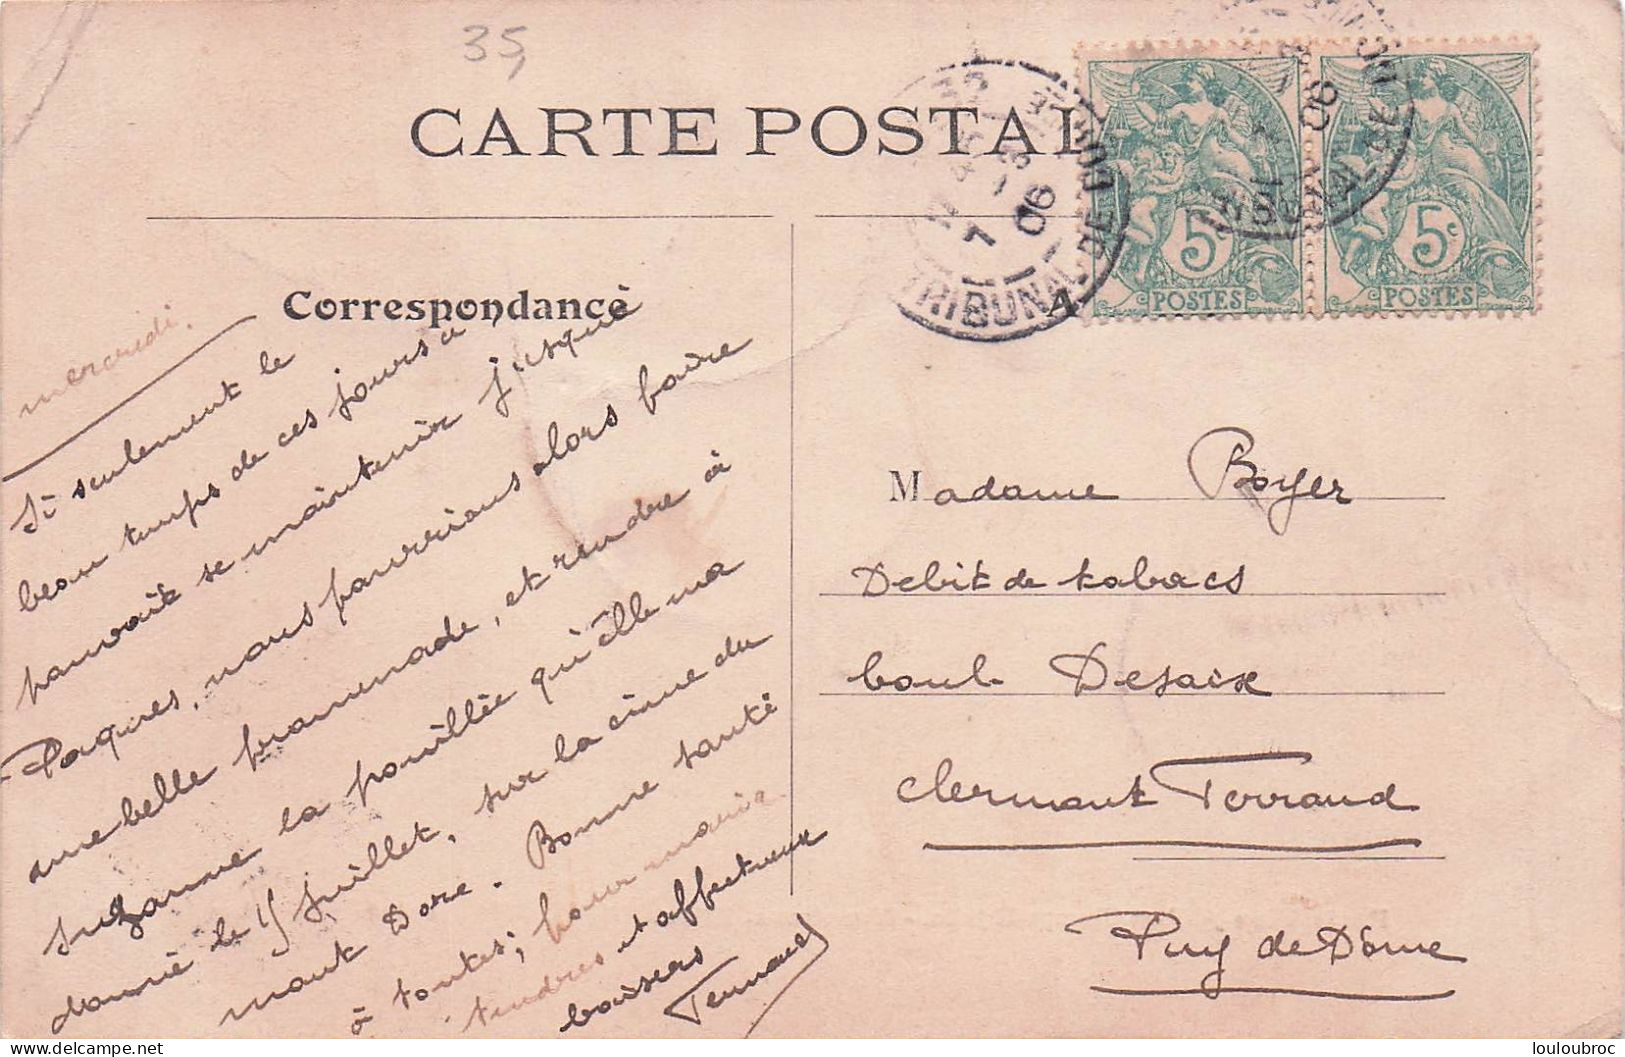 35
CARTE POSTALE
MARSEILLE
7 - 3
06
TRIBUNAL DE COM
5c
POSTES
5c
POSTES
Correspondance
mercredi.
Si seulement le
beau temps de ces jours ci
pouvait se maintenir jusqu'à
Paques, nous pourrions alors faire
une belle promenade, et rendre à
Suzanne la pouillée qu'elle m'a
donné le 15 Juillet, sur la cime du
mont Dore. Bonne santé
à toutes; pour maria
tendres et affectueux
baisers
Fernand
Madame Boyer
Debit de tabacs
boul. Desaix
Clermont Ferrand
Puy de Dôme
delcampe.net
louloubroc